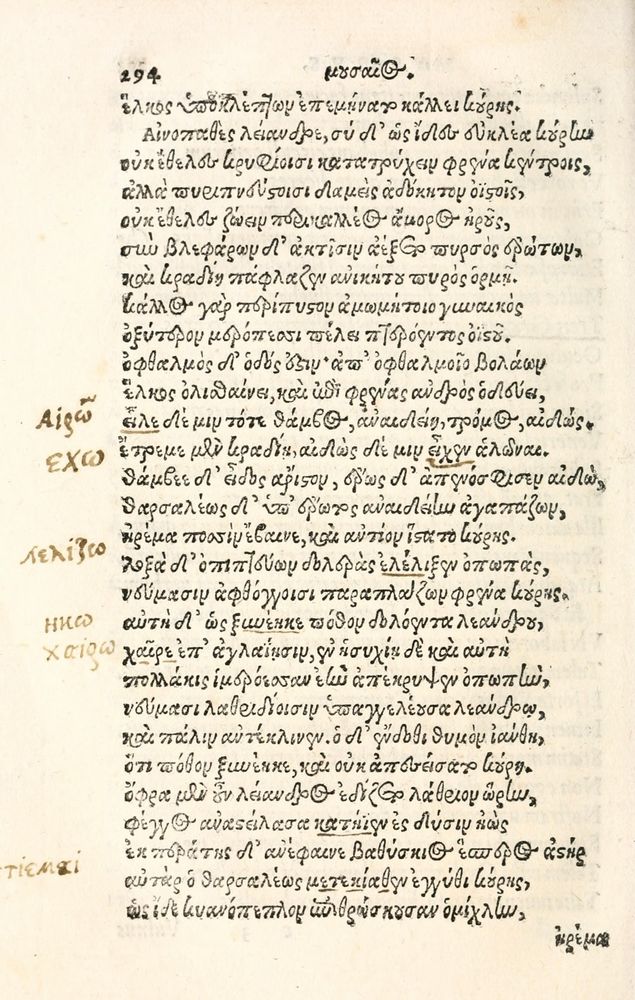 294 μουσαῖος.
ἕλκος ὑποκλέπτων ἐπεμήνατο κάλλει κούρης.
Αἰνοπαθὲς λέιανδρε, σὺ δ' ὡς ἴδες εὐκλέα κούρην
οὐκ ἔθελες κρυφίοισι κατατρύχειν φρένα κέντροις,
ἀλλὰ πυριπνεύστοισι δαμεὶς ἀδόκητον ὀϊστοῖς,
οὐκ ἔθελες ζώειν περικαλλέος ἄμορος ἡροῦς,
σὺν βλεφάρων δ' ἀκτῖσιν ἀέξετο πυρσὸς ἐρώτων,
καὶ κραδίη πάφλαζεν ἀνικήτου πυρὸς ὁρμῇ.
κάλλος γὰρ περίπυστον ἀμωμήτοιο γυναικὸς
ὀξύτερον μερόπεσσι πέλει πτερόεντος ὀϊστοῦ.
ὀφθαλμὸς δ' ὁδός ἐστιν· ἀπ' ὀφθαλμοῖο βολάων
ἕλκος ὀλισθαίνει, καὶ ἐπὶ φρένας ἀνδρὸς ὁδεύει,
Αἱρῶ
εἷλε δέ μιν τότε θάμβος, ἀναιδείη, τρόμος, αἰδώς.
ἔχω
ἔτρεμε μὲν κραδίη, αἰδὼς δέ μιν εἶχεν ἁλῶναι.
θάμβεε δ' εἶδος ἄριστον, ἔρως δ' ἀπενόσφισεν αἰδῶ,
θαρσαλέως δ' ὑπ' ἔρωτος ἀναιδείην ἀγαπάζων,
ἠρέμα ποσσὶν ἔβαινε, καὶ ἀντίον ἵστατο κούρης.
λελίζω
λοξὰ δ' ὀπιπτεύων δολερὰς ἐλέλιξεν ὀπωπὰς,
νεύμασιν ἀφθόγγοισι παραπλάζων φρένα κούρης.
ηκω
αὐτὴ δ' ὡς ξυνέηκε πόθον δολόεντα λεάνδρου,
χαιρω
χαῖρε ἐπ' ἀγλαΐῃσιν, ἐν ἡσυχίῃ δὲ καὶ αὐτὴ
πολλάκις ἱμερόεσσαν ἑὴν ἀπέκρυψεν ὀπωπὴν,
νεύμασι λαθριδίοισιν ὑπαγγέλλουσα λεάνδρῳ,
καὶ πάλιν ἀντέκλινεν. ὁ δ' ἔνδοθι θυμὸν ἰάνθη,
ὅτι πόθον ξυνέηκε, καὶ οὐκ ἀπεσείσατο κούρη.
ὄφρα μὲν οὖν λέιανδρος ἐδίζετο λάθριον ὥρην,
φέγγος ἀναστείλασα κατήϊεν ἐς δύσιν ἠὼς
ἐκ περάτης δ' ἀνέφαινε βαθύσκιος ἕσπερος ἀστήρ
τιεμαι
αὐτὰρ ὁ θαρσαλέως μετεκίαθεν ἐγγύθι κούρης,
ὡς ἴδε κυανόπεπλον ἐπιθρώσκουσαν ὁμίχλην,
ἠρέμα